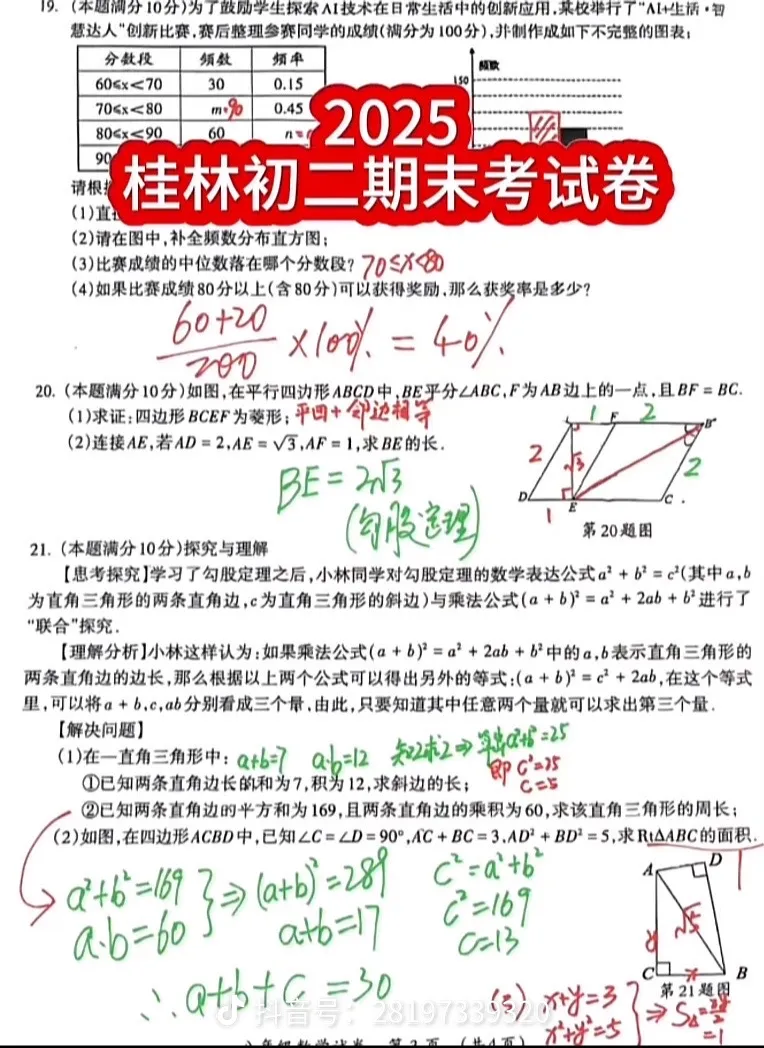 19. (本题满分10分)为了鼓励学生探索AI技术在日常生活中的创新应用,某校举行了“AI+生活·智
慧达人”创新比赛,赛后整理参赛同学的成绩(满分为100分),并制作成如下不完整的图表:
分数段 频数 频率
60≤x<70 30 0.15
70≤x<80 m=90 0.45
80≤x<90 60 n=
90
频数
150
2025
桂林初二期末考试卷
请根
(1)直
(2)请在图中,补全频数分布直方图;
(3)比赛成绩的中位数落在哪个分数段? 70≤x<80
(4)如果比赛成绩80分以上(含80分)可以获得奖励,那么获奖率是多少?
60+20/200 ×100% = 40%
20. (本题满分10分)如图,在平行四边形ABCD中,BE平分∠ABC,F为AB边上的一点,且BF = BC.
(1)求证:四边形BCEF为菱形; 平四+邻边相等
(2)连接AE,若AD = 2,AE = √3,AF = 1,求BE的长.
1 F 2 B
2 √3 2
D 1 E C
BE = 2√3
(勾股定理)
第20题图
21. (本题满分10分)探究与理解
【思考探究】学习了勾股定理之后,小林同学对勾股定理的数学表达公式a² + b² = c²(其中a,b
为直角三角形的两条直角边,c为直角三角形的斜边)与乘法公式(a + b)² = a² + 2ab + b²进行了
“联合”探究.
【理解分析】小林这样认为:如果乘法公式(a + b)² = a² + 2ab + b²中的a,b表示直角三角形的
两条直角边的边长,那么根据以上两个公式可以得出另外的等式:(a + b)² = c² + 2ab,在这个等式
里,可以将a + b,c,ab分别看成三个量,由此,只要知道其中任意两个量就可以求出第三个量.
【解决问题】
(1)在一直角三角形中: a+b=7 a·b=12 知2求2⇒算出a²+b²=25
即 c²=25
①已知两条直角边长的和为7,积为12,求斜边的长; c=5
②已知两条直角边的平方和为169,且两条直角边的乘积为60,求该直角三角形的周长;
(2)如图,在四边形ACBD中,已知∠C=∠D=90°,AC + BC = 3,AD² + BD² = 5,求Rt△ABC的面积.
1
a²+b²=169
a·b=60
⇒(a+b)²=289
a+b=17
c²=a²+b²
c²=169
c=13
∴ a+b+c = 30
A D
y √5
C x B
第21题图
(3) x+y=3
x²+y²=5
⇒ S△=xy/2
=1
抖音号: 28197339320
八年级数学试卷 第3页 (共4页)